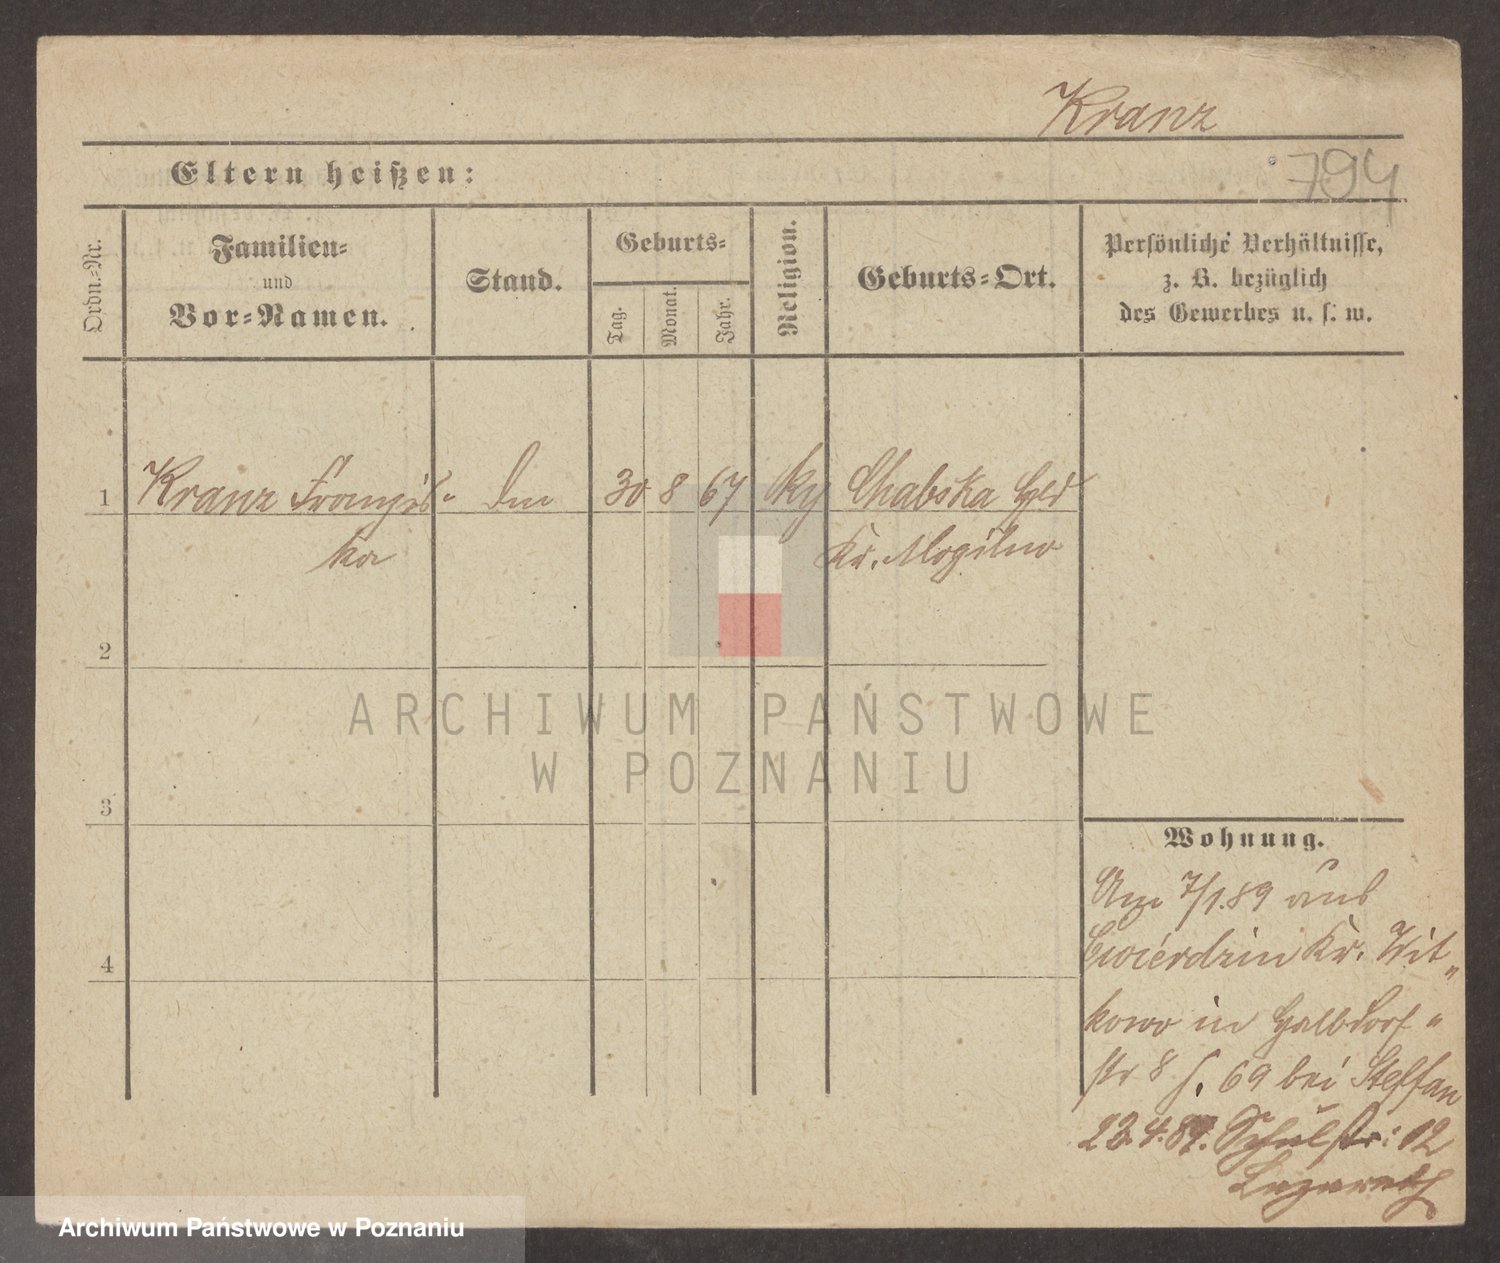 Kranz
Eltern heißen:
794
Ordn.-Nr.
Familien-
und
Vor-Namen.
Stand.
Geburts-
Tag.
Monat.
Jahr.
Religion.
Geburts-Ort.
Persönliche Verhältnisse,
z. B. bezüglich
des Gewerbes u. s. w.
1 Kranz Franzis- 30 8 67 Chabska
ka Kr. Mogilno
2
ARCHIWUM PAŃSTWOWE
W POZNANIU
3
Wohnung.
Am 7/1.89 aus
Cwierdzin Kr. Wit-
4
kowo in Halbdorf-
str 8 bei Steffan
23.4.89. Schulstr: 12
Lazareth
Archiwum Państwowe w Poznaniu